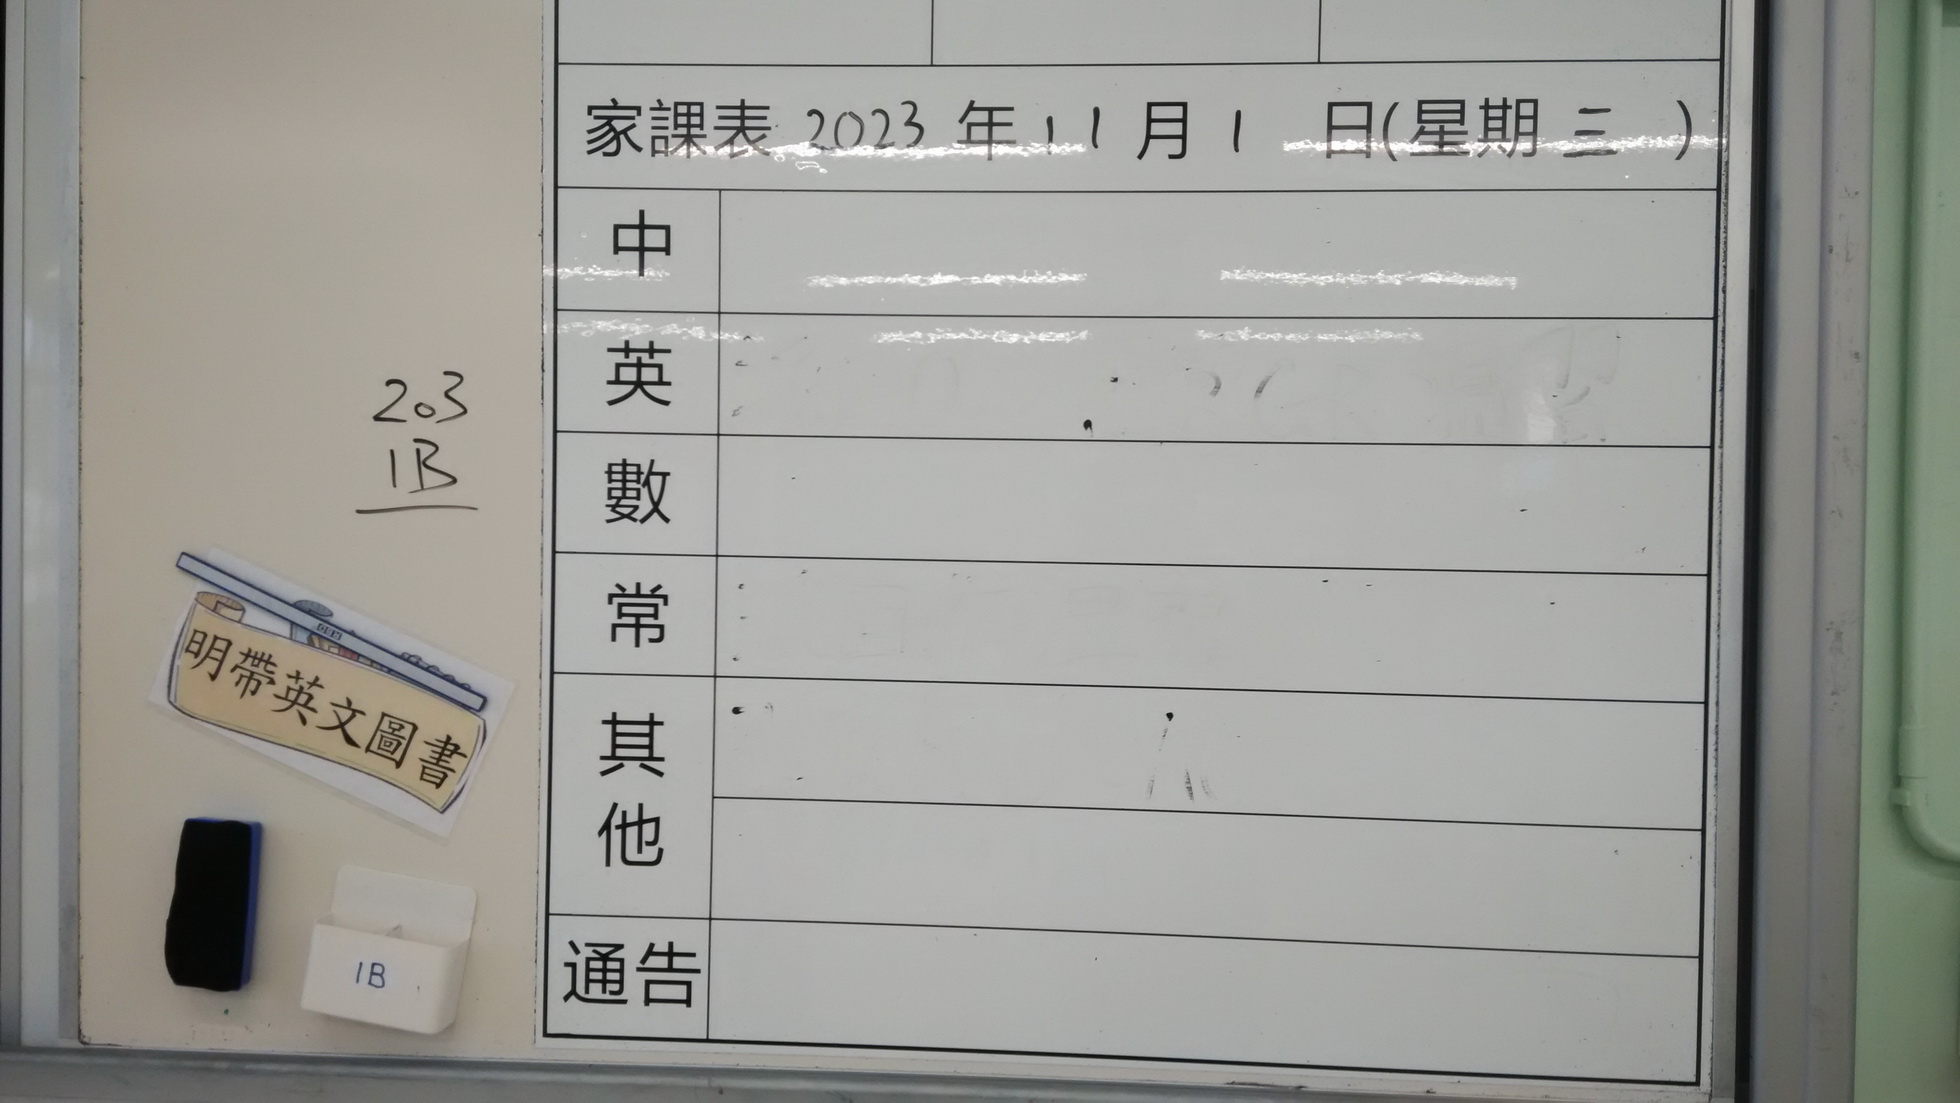 家課表 2023 年 11 月 1 日(星期 三 )
中
英
數
常
其他
通告
203
1B
明帶英文圖書
1B